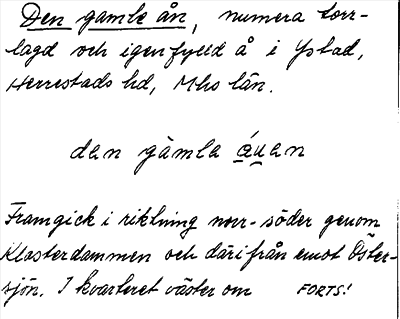 Den gamle ån, numera torr-
lagd och igenfylld å i Ystad,
Herrestads hd, Mhs län.
den gàmla áu̯en
Framgick i riktning norr-söder genom
Klosterdammen och därifrån emot Öster-
sjön. I kvarteret väster om FORTS!